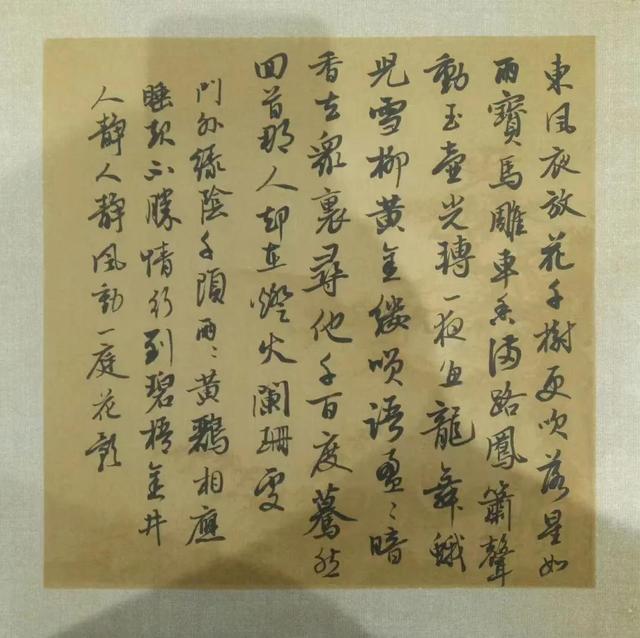 東風夜放花千樹更吹落星如
雨寶馬雕車香滿路鳳簫聲
動玉壺光轉一夜魚龍舞蛾
兒雪柳黃金縷笑語盈〻暗
香去衆裏尋他千百度驀然
回首那人却在燈火闌珊處
門外綠陰千頃兩〻黃鸝相應
睡起不勝情行到碧梧金井
人靜人靜風動一庭花影